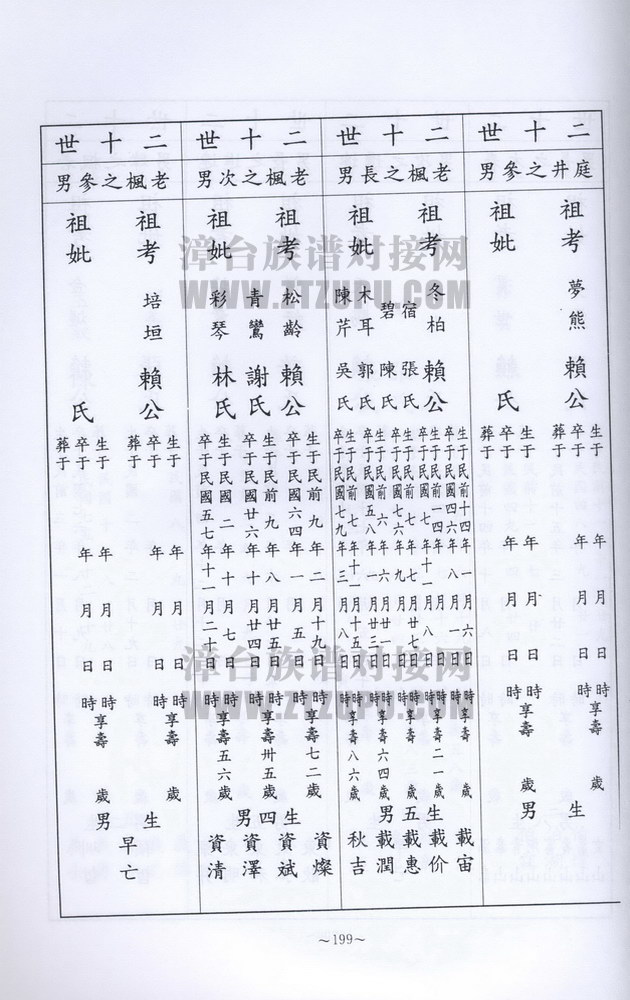 二十世
庭井之參男
祖考 夢熊 賴公
生于 年 月 日 時
卒于 年 月 日 時享壽 歲
葬于
祖妣 氏
生于 年 月 日 時
卒于 年 月 日 時享壽 歲
葬于
生 男
二十世
老楓之長男
祖考 冬柏 賴公
生于民前十四年一月六日時
卒于民國四六年八月一日時享壽 歲
祖妣
宿 張氏
生于民前一四年 月 日時
卒于民國七年十一月八日時享壽二一歲
碧 陳氏
生于民前七年七月廿七日時
卒于民國七六年九月 日時享壽 歲
木耳 郭氏
生于民前六年六月廿一日時
卒于民國五八年一月廿三日時享壽六四歲
陳芹 吳氏
生于民前七年十一月十五日時
卒于民國七九年三月八日時享壽八六歲
生五男
載宙
載价
載惠
載潤
秋吉
二十世
老楓之次男
祖考 松齡 賴公
生于民前九年二月十九日時
卒于民國六四年一月五日時享壽七二歲
祖妣
青鸞 謝氏
生于民前九年八月廿五日時
卒于民國廿六年十月廿四日時享壽卅五歲
彩琴 林氏
生于民國二年十月七日時
卒于民國五七年十一月二十日時享壽五六歲
生四男
資燦
資斌
資澤
資清
二十世
老楓之參男
祖考 培垣 賴公
生于 年 月 日 時
卒于 年 月 日 時享壽 歲
葬于
祖妣 氏
生于 年 月 日 時
卒于 年 月 日 時享壽 歲
葬于
生 男
早亡
～199～
漳台族谱对接网
WWW.ZTZUPU.COM
漳台族谱对接网
WWW.ZTZUPU.COM